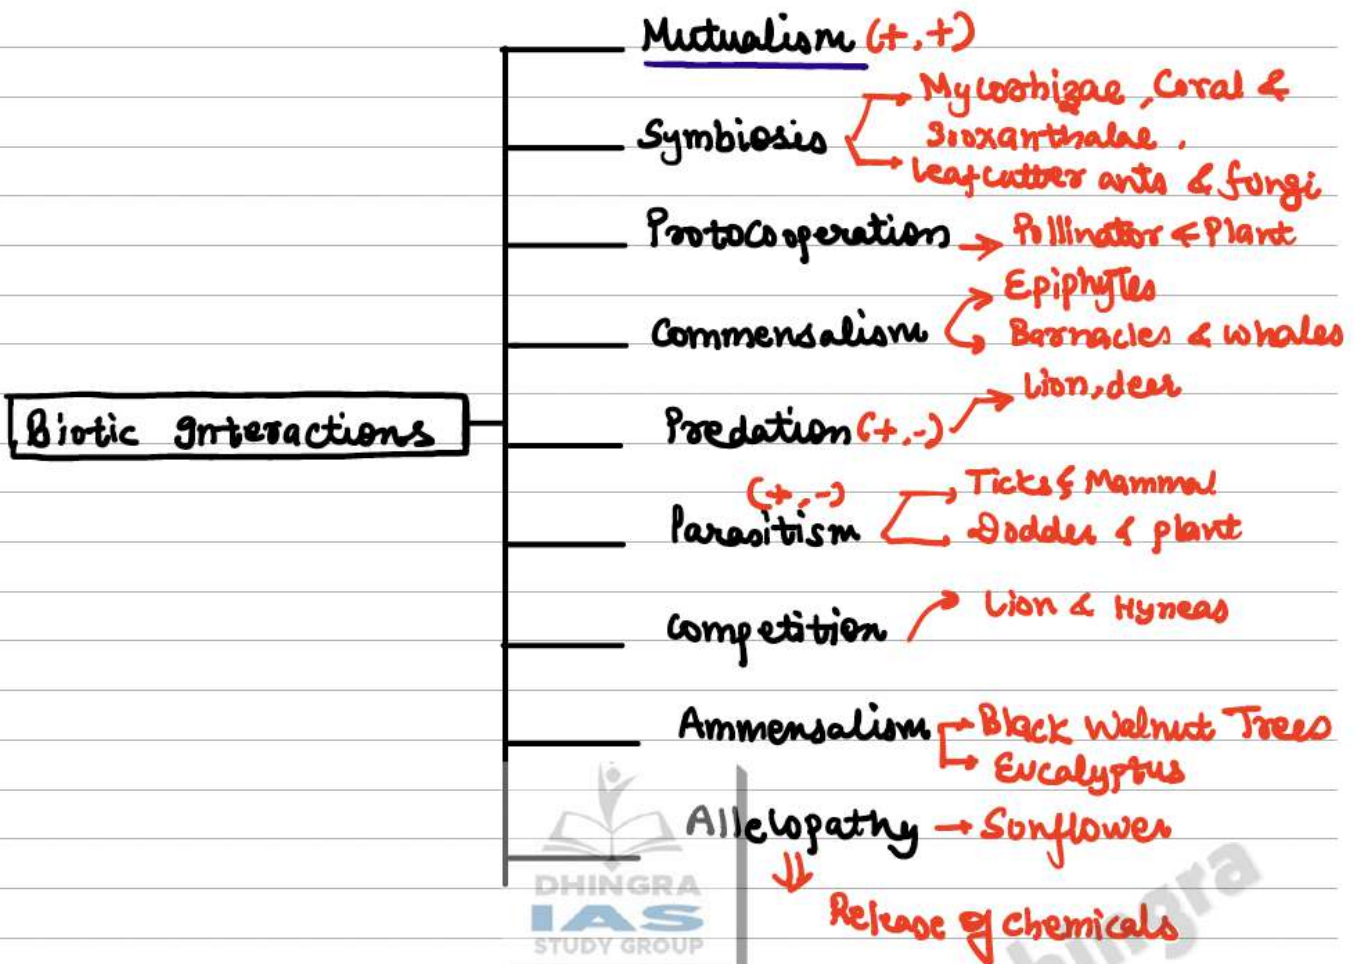 Mutualism (+,+)
Symbiosis
Mycorhizae, Coral &
zooxanthalae,
leafcutter ants & fungi
Protocooperation → Pollinator & Plant
Commensalism
Epiphytes
Barnacles & whales
Biotic Interactions
Predation (+,-)
Lion, deer
(+,-)
Parasitism
Ticks & Mammal
Dodder & plant
Competition
Lion & Hyneas
Ammensalism
Black Walnut Trees
Eucalyptus
Allelopathy → Sunflower
Release of chemicals
DHINGRA
IAS
STUDY GROUP